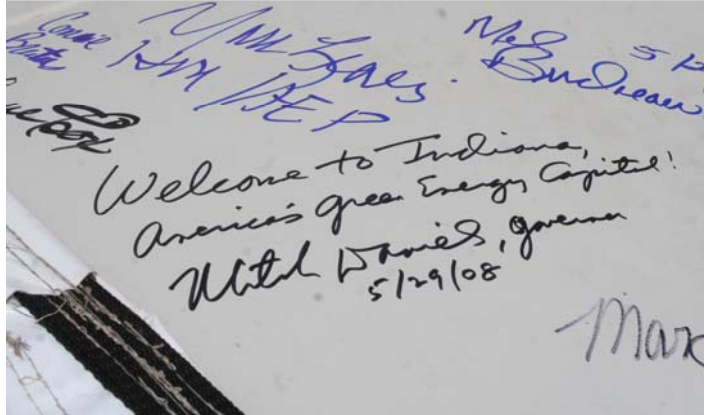 Connie
I&M / AEP
Mel
Budreau
Welcome to Indiana,
America's green Energy Capital!
Mitch Daniels, governor
5/29/08
Marc